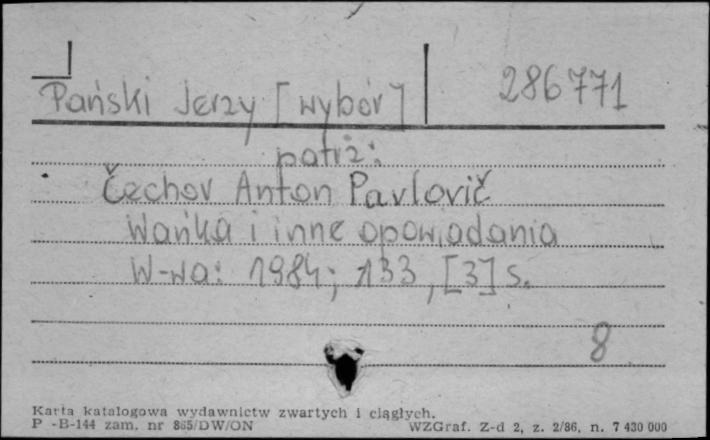 Pański Jerzy [wybór] 286771
patrz:
Čechov Anton Pavlovič
Wańka i inne opowiadania
W-wa: 1984; 133, [3] s.
8
Karta katalogowa wydawnictw zwartych i ciągłych.
P -B-144 zam. nr 865/DW/ON WZGraf. Z-d 2, z. 2/86, n. 7 430 000